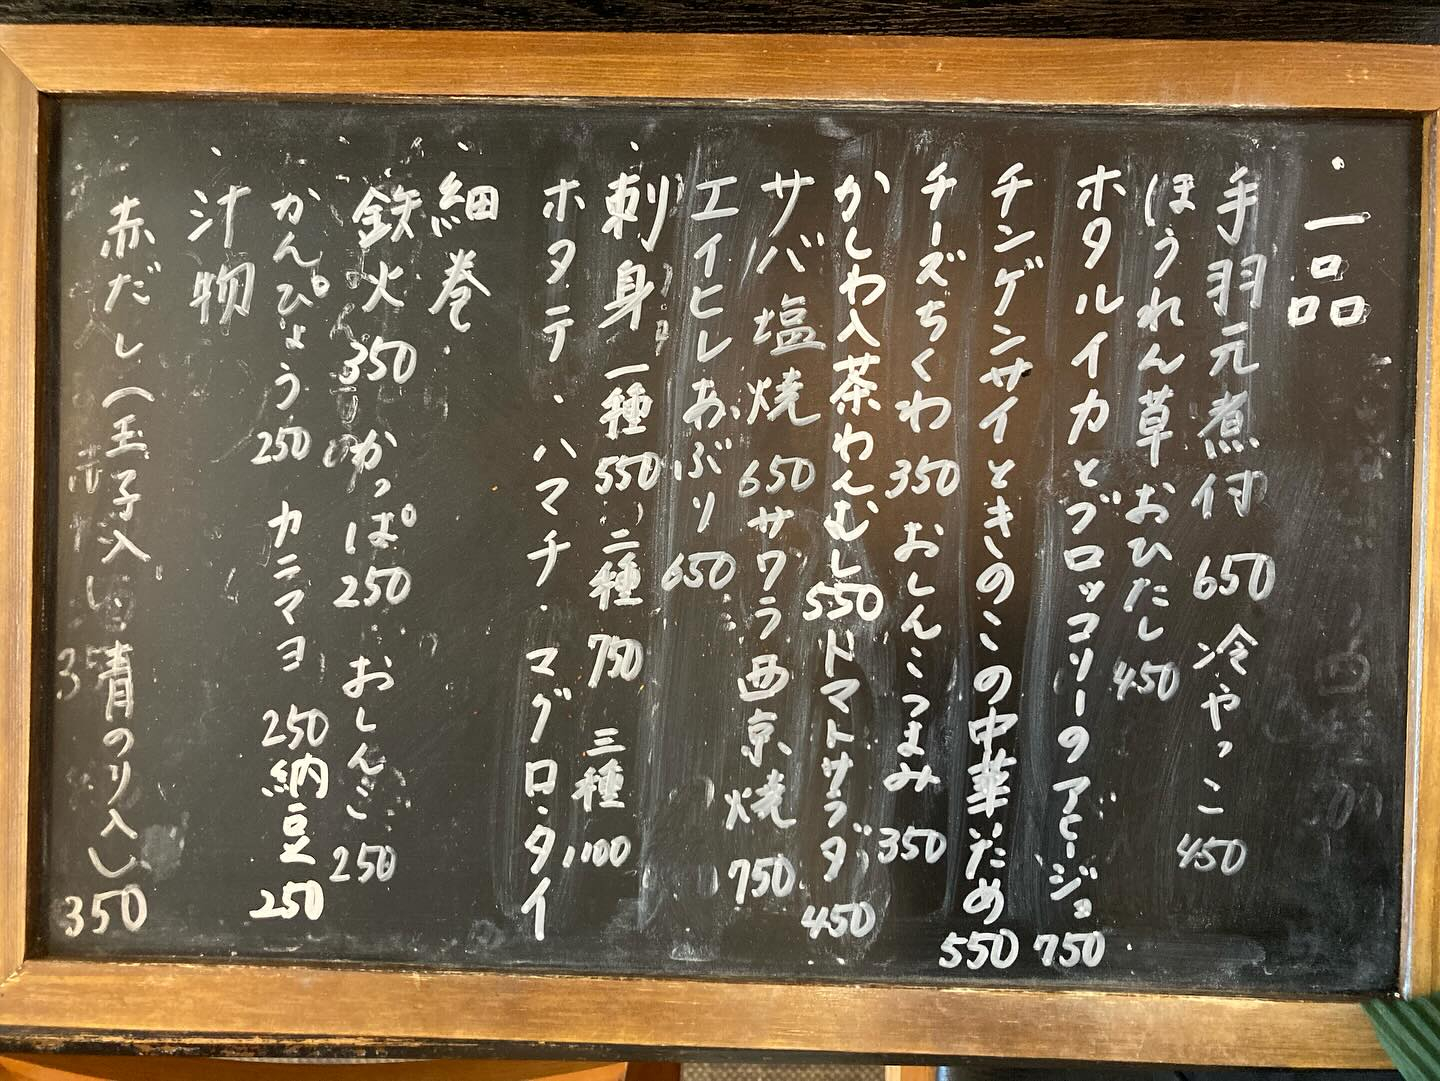 ・一品
手羽元煮付 650 冷やっこ 450
ほうれん草おひたし 450
ホタルイカとブロッコリーのアヒージョ 750
チンゲンサイときのこの中華いため 550
チーズちくわ 350 おしんこつまみ 350
かしわ入茶わんむし 550 トマトサラダ 450
サバ塩焼 650 サワラ西京焼 750
エイヒレあぶり 650
・刺身 一種 550 二種 750 三種 1,100
ホタテ・ハマチ・マグロ・タイ
・細巻
鉄火 350 かっぱ 250 おしんこ 250
かんぴょう 250 カニマヨ 250 納豆 250
・汁物
赤だし(玉子入 青のり入) 350